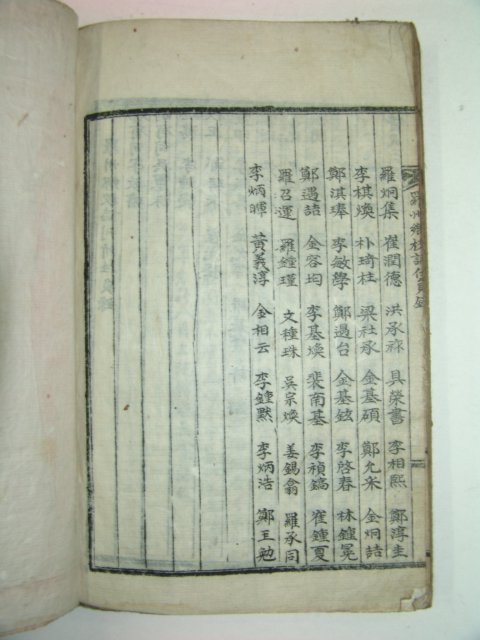 羅州鄕校
羅炯集 崔潤德 洪承 具榮書 李相熙 鄭淳圭
李棋煥 朴琦柱 梁社承 金基碩 鄭允采 金炯喆
鄭淇奉 李敏學 鄭遇台 金基鉉 李啓春 林鍾冕
鄭遇喆 金容均 李基煥 裴南基 李禎鎬 崔鍾夏
羅召運 羅鍾瑾 文種珠 吳宗煥 姜錫龠 羅承同
李炳暉 黃義淳 金相云 李鍾默 李炳浩 鄭王勉